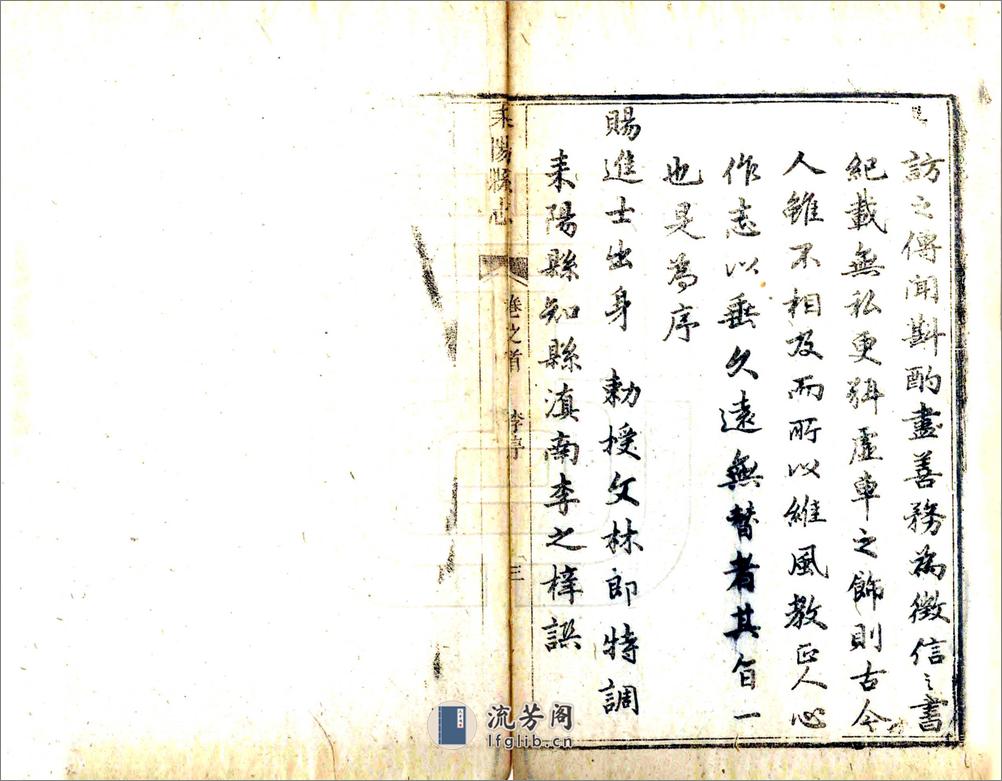 訪之傳聞斟酌盡善務為徵信之書
紀載無私更弭虛車之飾則古今
人雖不相及而所以維風教正人心
作志以垂久遠無替者其旨一
也是為序
賜進士出身 勅授文林郎特調
耒陽縣知縣滇南李之梓譔
耒陽縣志 卷之首 李序 三
流芳阁
lfglib.cn